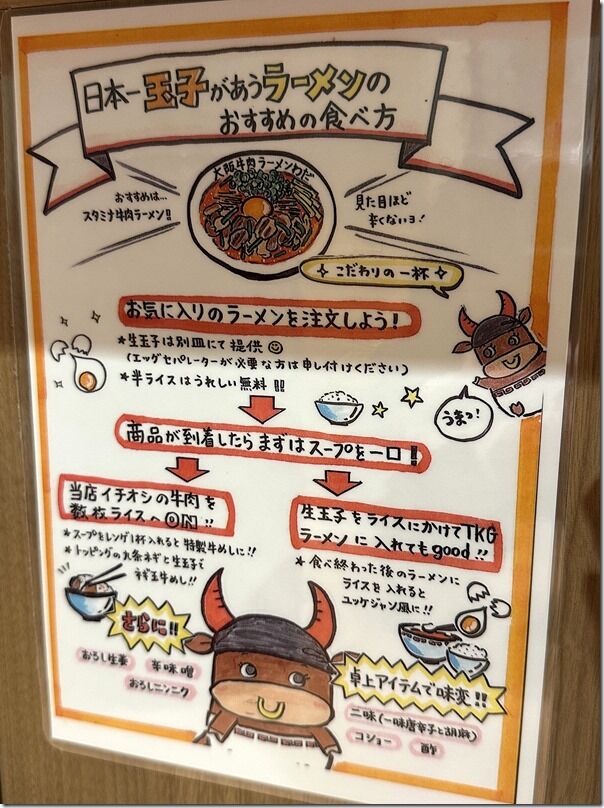 日本一玉子があうラーメンの
おすすめの食べ方
大阪牛肉ラーメンわだ
おすすめは…
スタミナ牛肉ラーメン!!
見た目ほど
辛くないヨ!
こだわりの一杯
お気に入りのラーメンを注文しよう!
*生玉子は別皿にて提供
(エッグセパレーターが必要な方は申し付けください)
*半ライスはうれしい無料!!
うまっ!
商品が到着したらまずはスープを一口!
当店イチオシの牛肉を
数枚ライスへON!!
*スープをレンゲ1杯入れると特製牛めしに!!
*トッピングの九条ネギと生玉子で
ねぎ玉牛めし!!
生玉子をライスにかけてTKG
ラーメンに入れてもgood!!
*食べ終わった後のラーメンに
ライスを入れると
ユッケジャン風に!!
さらに!!
おろし生姜
辛味噌
おろしニンニク
卓上アイテムで味変!!
二味(一味唐辛子と胡麻)
コショー
酢